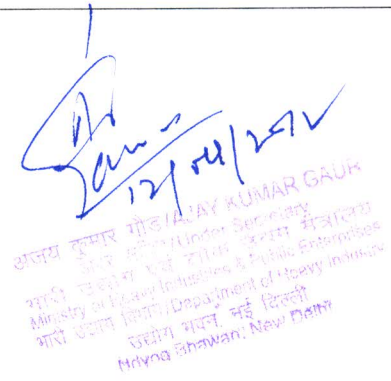 12/04/2012
अजय कुमार गौड/AJAY KUMAR GAUR
अवर सचिव/Under Secretary
भारी उद्योग एवं लोक उद्यम मंत्रालय
Ministry of Heavy Industries & Public Enterprises
भारी उद्योग विभाग/Department of Heavy Industry
उद्योग भवन, नई दिल्ली
Udyog Bhawan, New Delhi